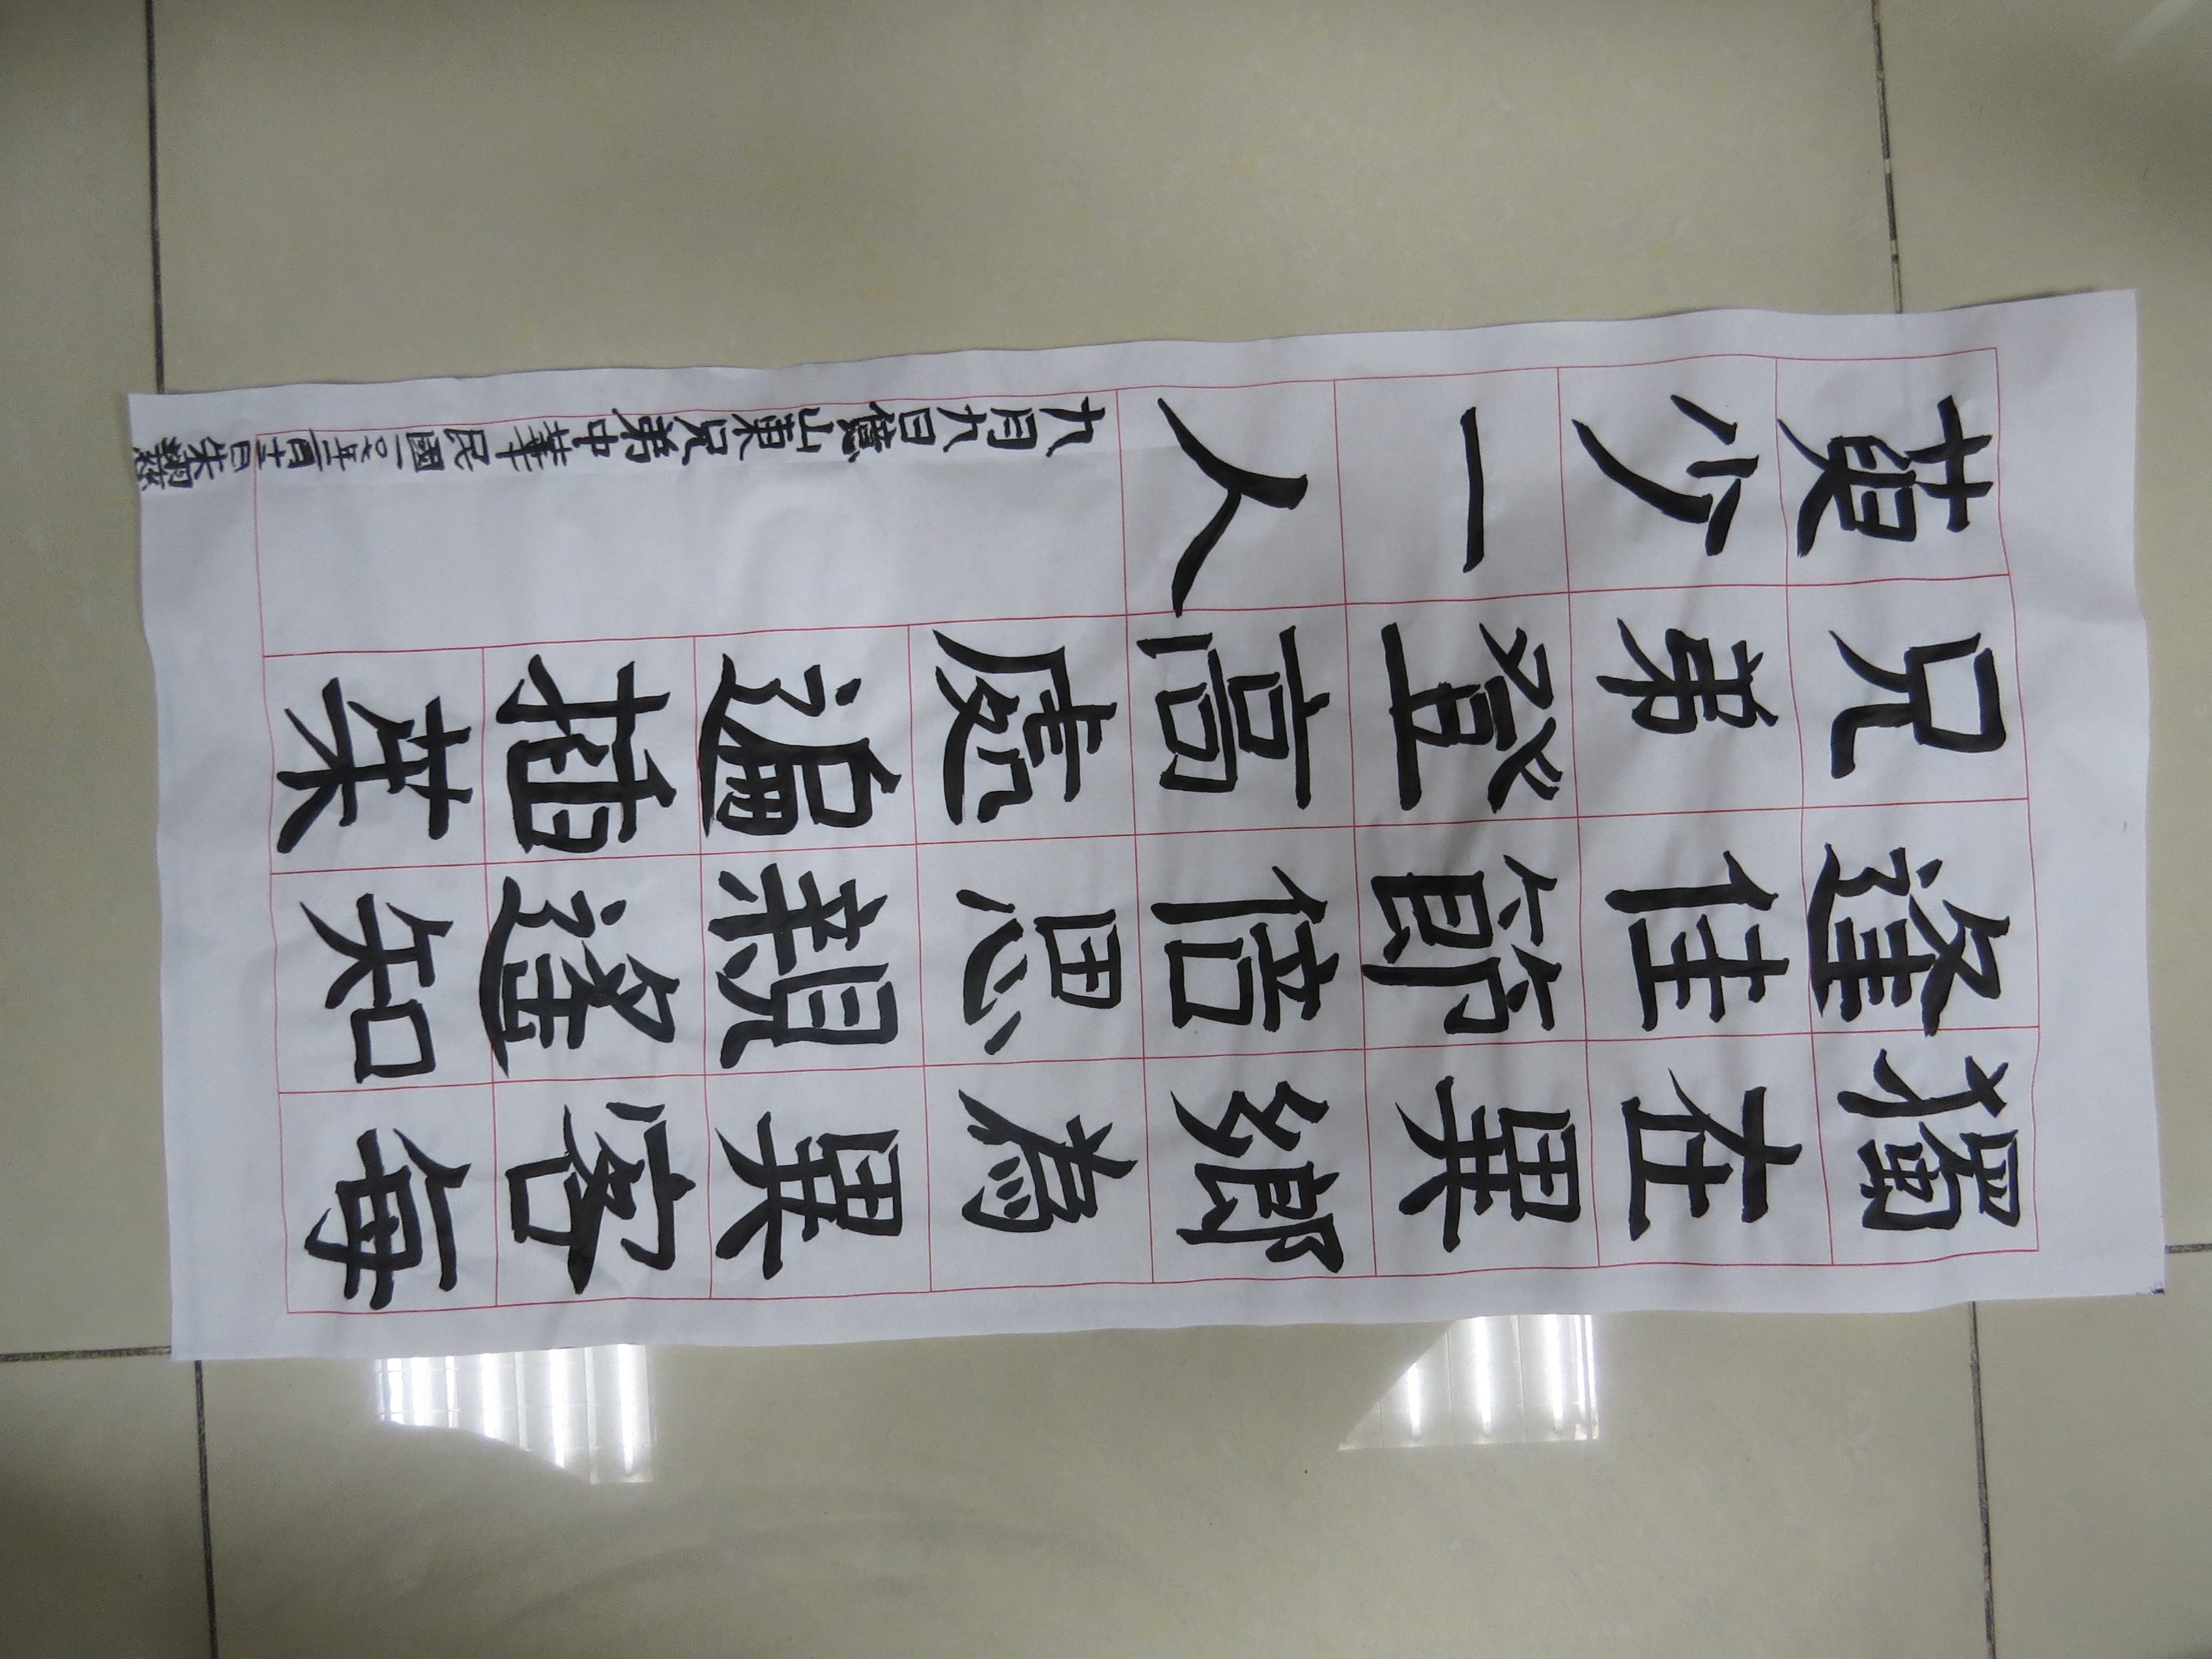 獨在異鄉為異客每
逢佳節倍思親遙知
兄弟登高處遍插茱
萸少一人
九月九日憶山東兄弟中華民國一〇五年